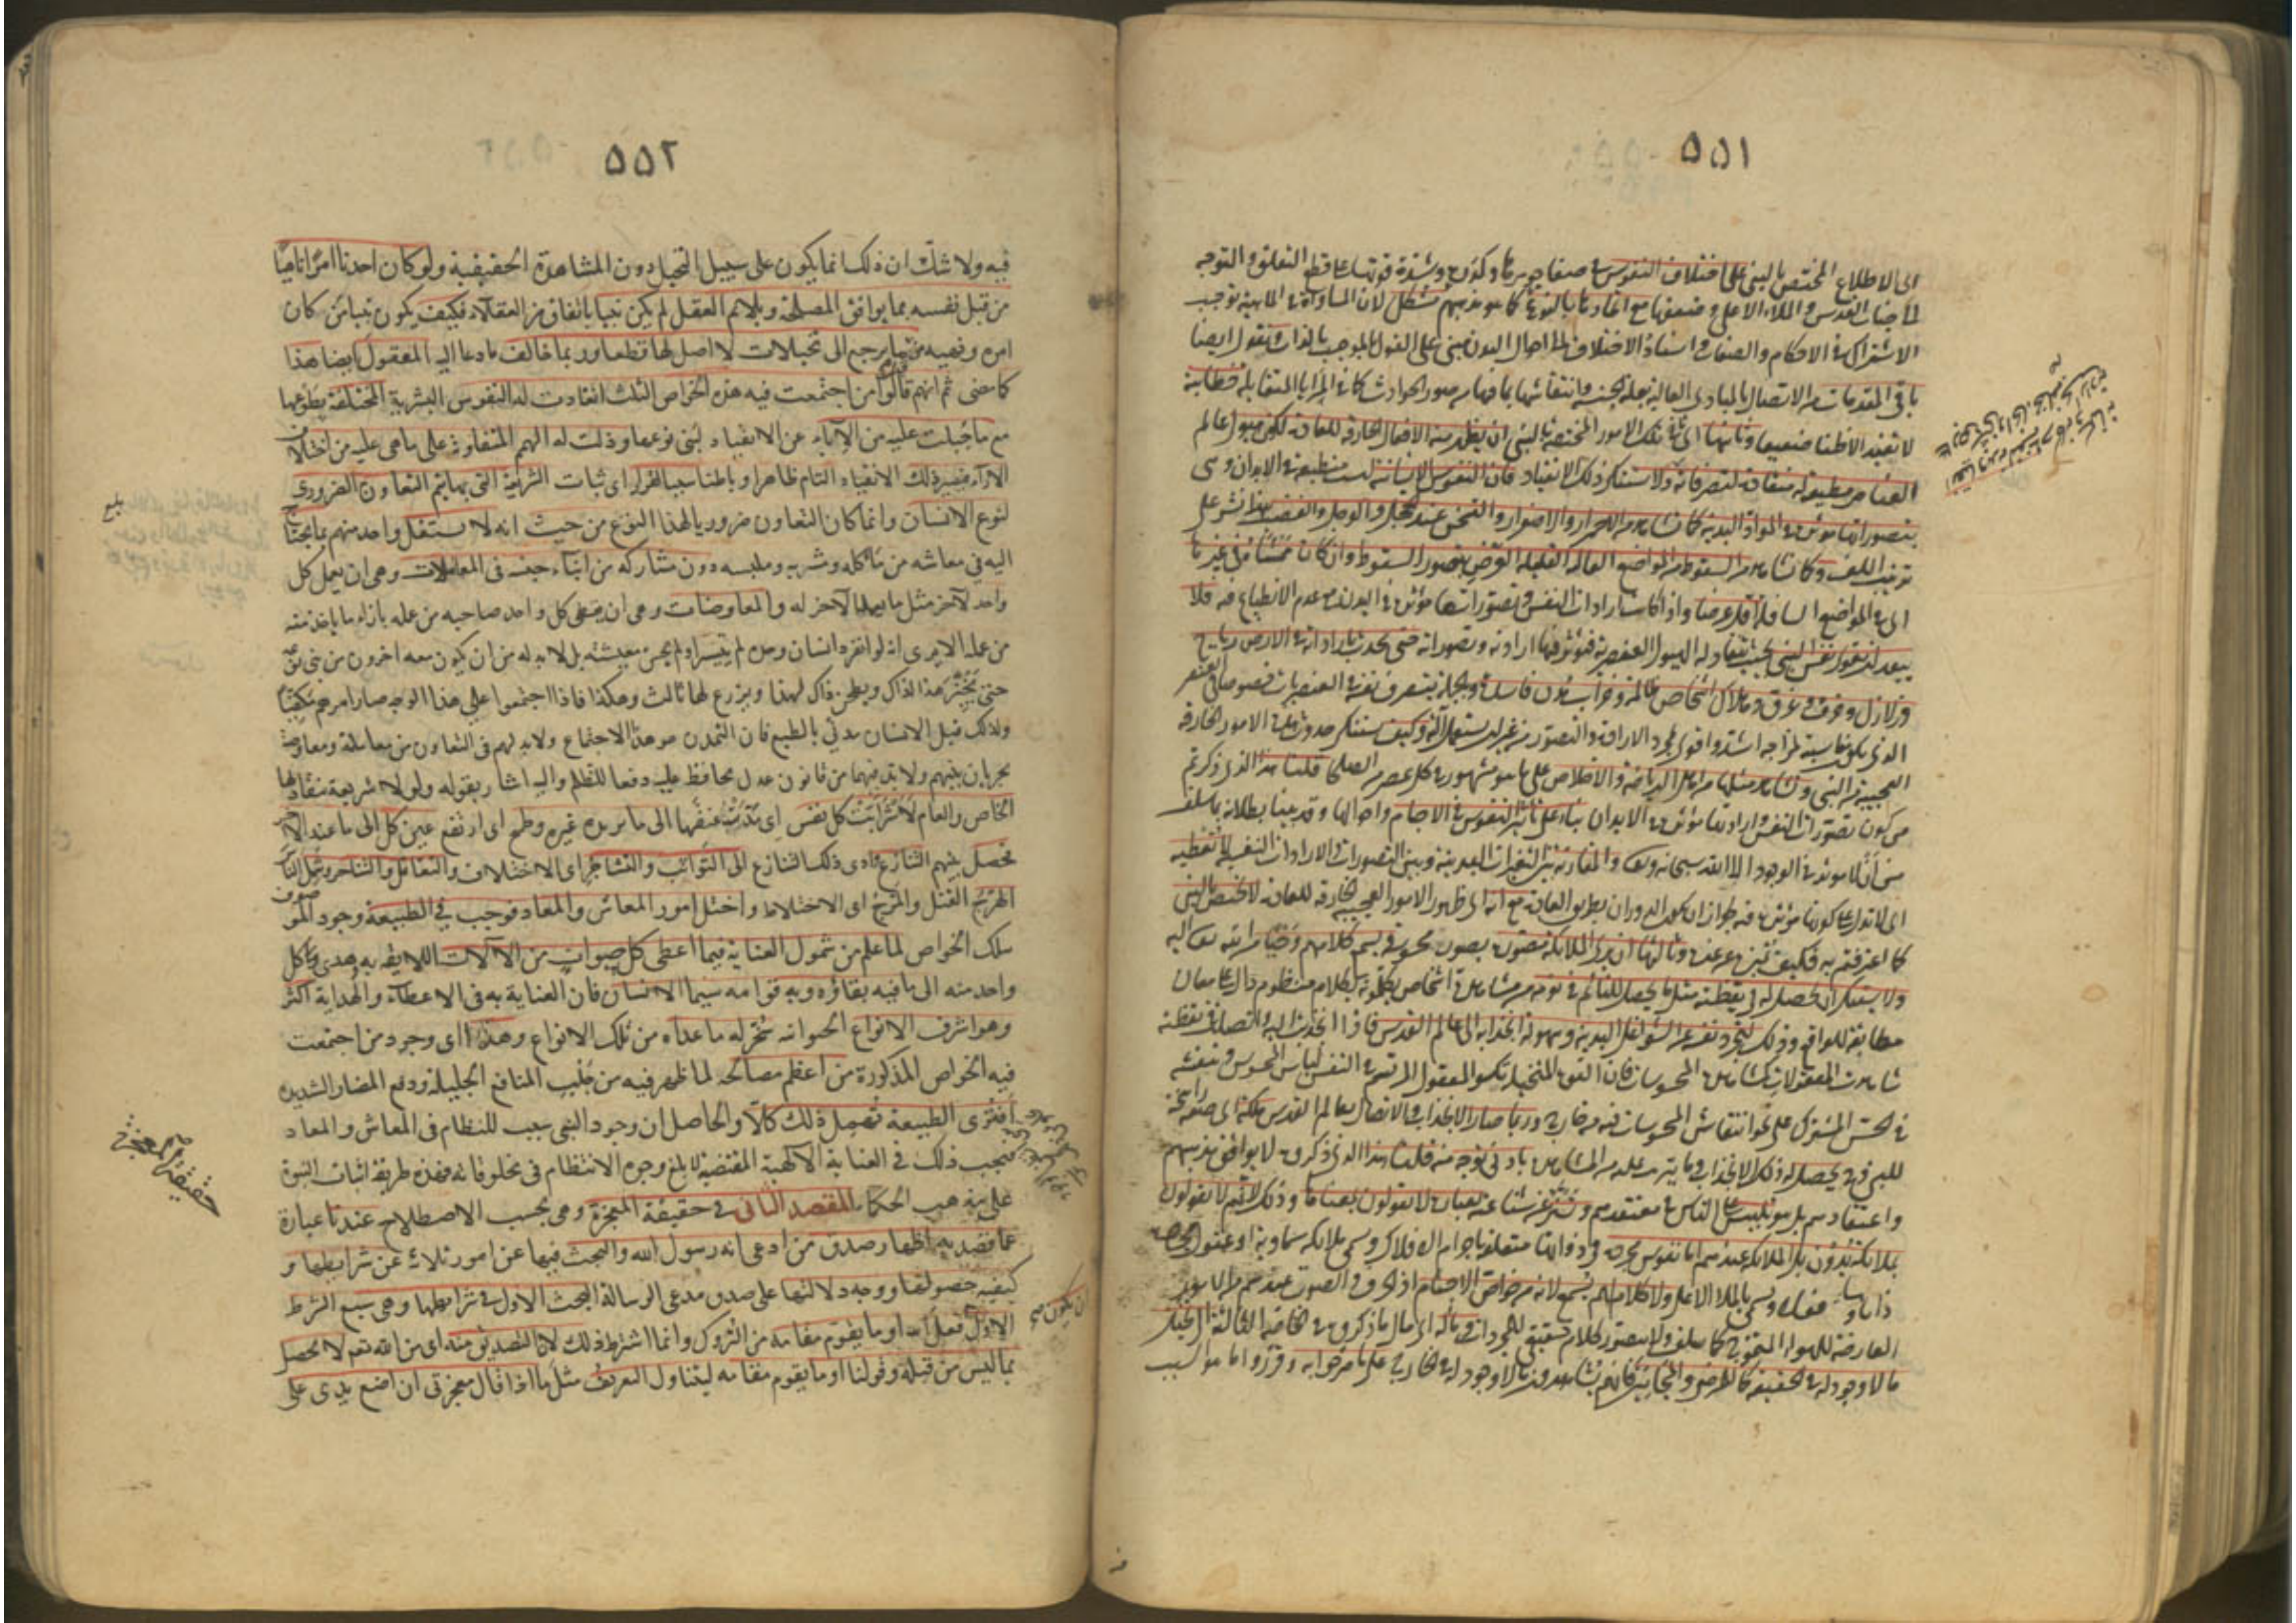 ٥٥١
اى الاطلاع المختص بالنبى على اختلاف النفوس فى صفاء جوهرها وكدره وشدة قوتها على قطع التعلق والتوجه
الى جناب القدس والملاء الاعلى وضعفها مع اتحادها بالنوع كما هو مذهبهم مشكل لان المساواة فى الماهية توجب
الاشتراك فى الاحكام والصفات واسناد الاختلاف الى احوال البدن مبنى على القول بالموجب بالذات ونقول ايضا
باقى المقدمات من الاتصال بالمبادى العالية بعلة الجنسية وانتقاشها بما فيها من صور الحوادث كما فى المرايا المتقابلة خطابية
لا تفيد الا ظنا ضعيفا وثانيها اى ثانى تلك الامور المختصة بالنبى ان يظهر منه الافعال الخارقة للعادة لكون هيولى عالم
العناصر مطيعة له منقادة لتصرفاته ولا يستنكر ذلك الانقياد فان النفوس الانسانية ليست منطبعة فى الابدان وهى
بتصوراتها مؤثرة فى المواد البدنية كما نشاهد من الاحمرار والاصفرار والتسخن عند الخجل والوجل والغضب
وكما نشاهد من السقوط من المواضع العالية القليلة العرض بتصور السقوط وان كان ممشاه فى غيرها
اى فى المواضع السافلة اقل عرضا واذا كانت ارادات النفس وتصوراتها مؤثرة فى البدن مع عدم الانطباع فيه فلا
يبعد ان تقوى نفس النبى بحيث تنقاد له الهيولى العنصرية فتؤثر فيها ارادته وتصوراته حتى تحدث بارادته فى الارض رياح
وزلازل وحرق وغرق وهلاك اشخاص ظالمة وخراب مدن فاسدة وبالجملة يتصرف نفسه فى العنصريات خصوصا فى العنصر
الذى يكون مناسبته لمزاجه اشد واقوى بمجرد الارادة والتصور من غير ان يستعمل آلة وكيف يستنكر حدوث هذه الامور الخارقة
العجيبة من النبى ونشاهد مثلها من اهل الرياضة والاخلاص على ما هو مشهور فى كل عصر من الصلحا قلنا هذا الذى ذكرتم
من كون تصورات النفس واراداتها مؤثرة فى الابدان بناء على تأثير النفوس فى الاجسام واحوالها وقد بينا بطلانه بما سلف
من ان لا مؤثر فى الوجود الا الله سبحانه وتعالى والمقارنة بين التغيرات البدنية وبين التصورات والارادات النفسية لا تعطيه
اى لا تدل على كونها مؤثرة فيه لجواز ان يكون الدوران بطريق العادة مع انه اى ظهور الامور العجيبة الخارقة للعادة لا يختص بالنبى
كما اعترفتم به فكيف تميزه عن غيره وثالثها ان يرى الملائكة مصورة بصور محسوسة ويسمع كلامهم وحيا من الله تعالى اليه
ولا يستنكر ان يحصل له فى يقظته مثل ما يحصل للنائم فى نومه من مشاهدة اشخاص يكلمونه بكلام منظوم دال على معان
مطابقة للواقع وذلك لتجرد نفسه عن الشواغل البدنية وسهولة انجذابه الى عالم القدس فاذا انجذبت اليه واتصلت فى يقظته
شاهدت المعقولات كمشاهدة المحسوسات فان القوة المتخيلة تكسو المعقول المرتسم فى النفس لباس المحسوس وتنقشه
فى الحس المشترك على نحو انتقاش المحسوسات فيه من خارج وربما صار الانجذاب والاتصال بعالم القدس ملكة اى صفة راسخة
للنبى فحينئذ يحصل له ذلك الانجذاب وما يترتب عليه من المشاهدة بادنى توجه منه قلنا هذا الذى ذكروه لا يوافق مذهبهم
واعتقادهم بل هو تلبيس على الناس فى معتقدهم وتستر عن شناعته بعبارة لا يقولون بمعناها وذلك لانهم لا يقولون
بملائكة يرون بل الملائكة عندهم اما نفوس مجردة فى ذواتها متعلقة باجرام الافلاك وتسمى ملائكة سماوية او عقول مجردة
ذاتا وفعلا وتسمى بالملاء الاعلى ولا كلام لهم يسمع لانه من خواص الاجسام اذ الحروف والصوت عندهم من الامور
العارضة للهواء المتموج كما سلف ولا يتصور كلام حقيقى للمجردات ومآله اى مآل ما ذكروه فى الخاصة الثالثة الى تخيل
ما لا وجود له فى الحقيقة كما للمرضى والمجانين فانهم يشاهدون ما لا وجود له فى الخارج على ما صرحوا به وقرروا ما هو السبب
٥٥٢
فيه ولا شك ان ذلك انما يكون على سبيل التخيل دون المشاهدة الحقيقية ولو كان احدنا امرا ناهيا
من قبل نفسه بما يوافق المصلحة ويلائم العقل لم يكن نبيا باتفاق من العقلاء فكيف يكون نبيا من كان
امره ونهيه مما يرجع الى تخيلات لا اصل لها قطعا وربما خالف ما دعا اليه المعقول ايضا هذا
كما مضى ثم انهم قالوا من اجتمعت فيه هذه الخواص الثلث انقادت له النفوس البشرية المختلفة بطوعها
مع ما جبلت عليه من الاباء عن الانقياد لبنى نوعها وذلت له الهمم المتفاوتة على ما هى عليه من اختلاف
الآراء فيصير ذلك الانقياد التام ظاهرا وباطنا سببا لقرار اى ثبات الشريعة التى بها يتم التعاون الضرورى
لنوع الانسان وانما كان التعاون ضروريا لهذا النوع من حيث انه لا يستقل واحد منهم بما يحتاج
اليه فى معاشه من مأكله ومشربه وملبسه دون مشاركة من ابناء جنسه فى المعاملات وهى ان يعمل كل
واحد لآخر مثل ما يعمله الآخر له والمعاوضات وهى ان يعطى كل واحد صاحبه من عمله بازاء ما يأخذ منه
من عمله الا يرى انه لو انفرد انسان وحده لم يتيسر او لم يحسن معيشته بل لا بد له من ان يكون معه آخرون من بنى نوعه
حتى يخبز هذا لذاك ويطحن ذاك لهذا ويزرع لهما ثالث وهكذا فاذا اجتمعوا على هذا الوجه صار امرهم مكفيا
ولذلك قيل الانسان مدنى بالطبع فان التمدن هو هذا الاجتماع ولا بد لهم فى التعاون من معاملة ومعاوضة
يجريان بينهم ولا بد فيهما من قانون عدل يحافظ عليه دفعا للظلم واليه اشار بقوله ولو لا شريعة ينقاد لها
الخاص والعام لاشرأبت كل نفس اى مدت عنقها الى ما يريده غيره وطمح اى ارتفع عين كل الى ما عند الآخر
فحصل بينهم التنازع وادى ذلك التنازع الى التواثب والتشاجر اى الاختلاف والتقاتل والتناحر وشمل الناس
الهرج القتل والمرج اى الاختلاط واختل امور المعاش والمعاد فوجب فى الطبيعة وجود الموصوف
بتلك الخواص لما علم من شمول العناية فيما اعطى كل حيوان من الآلات اللايقة به وهدى كل
واحد منه الى ما فيه بقاؤه وبه قوامه سيما الانسان فان العناية به فى الاعطاء والهداية اكثر
وهو اشرف الانواع الحيوانية سخر له ما عداه من تلك الانواع وهذا اى وجود من اجتمعت
فيه الخواص المذكورة من اعظم مصالحه لما ظهر فيه من جلب المنافع الجليلة ودفع المضار الشديدة
افترى الطبيعة تهمل ذلك كلا والحاصل ان وجود النبى سبب للنظام فى المعاش والمعاد
فيجب ذلك فى العناية الالهية المقتضية لابلغ وجوه الانتظام فى مخلوقاته فهذه طريقة اثبات النبوة
على مذهب الحكماء المقصد الثانى فى حقيقة المعجزة وهى بحسب الاصطلاح عندنا عبارة
عما قصد به اظهار صدق من ادعى انه رسول الله والبحث فيها عن امور ثلاثة عن شرايطها و
كيفية حصولها ووجه دلالتها على صدق مدعى الرسالة البحث الاول فى شرايطها وهى سبع الشرط
الاول فعل الله او ما يقوم مقامه من التروك وانما اشترط ذلك لان التصديق منه اى من الله تعالى لا يحصل
بما ليس من قبله وقولنا او ما يقوم مقامه ليتناول التعريف مثل ما اذا قال معجزتى ان اضع يدى على
بلغ
حقيقة المعجزة
ان يكون صح